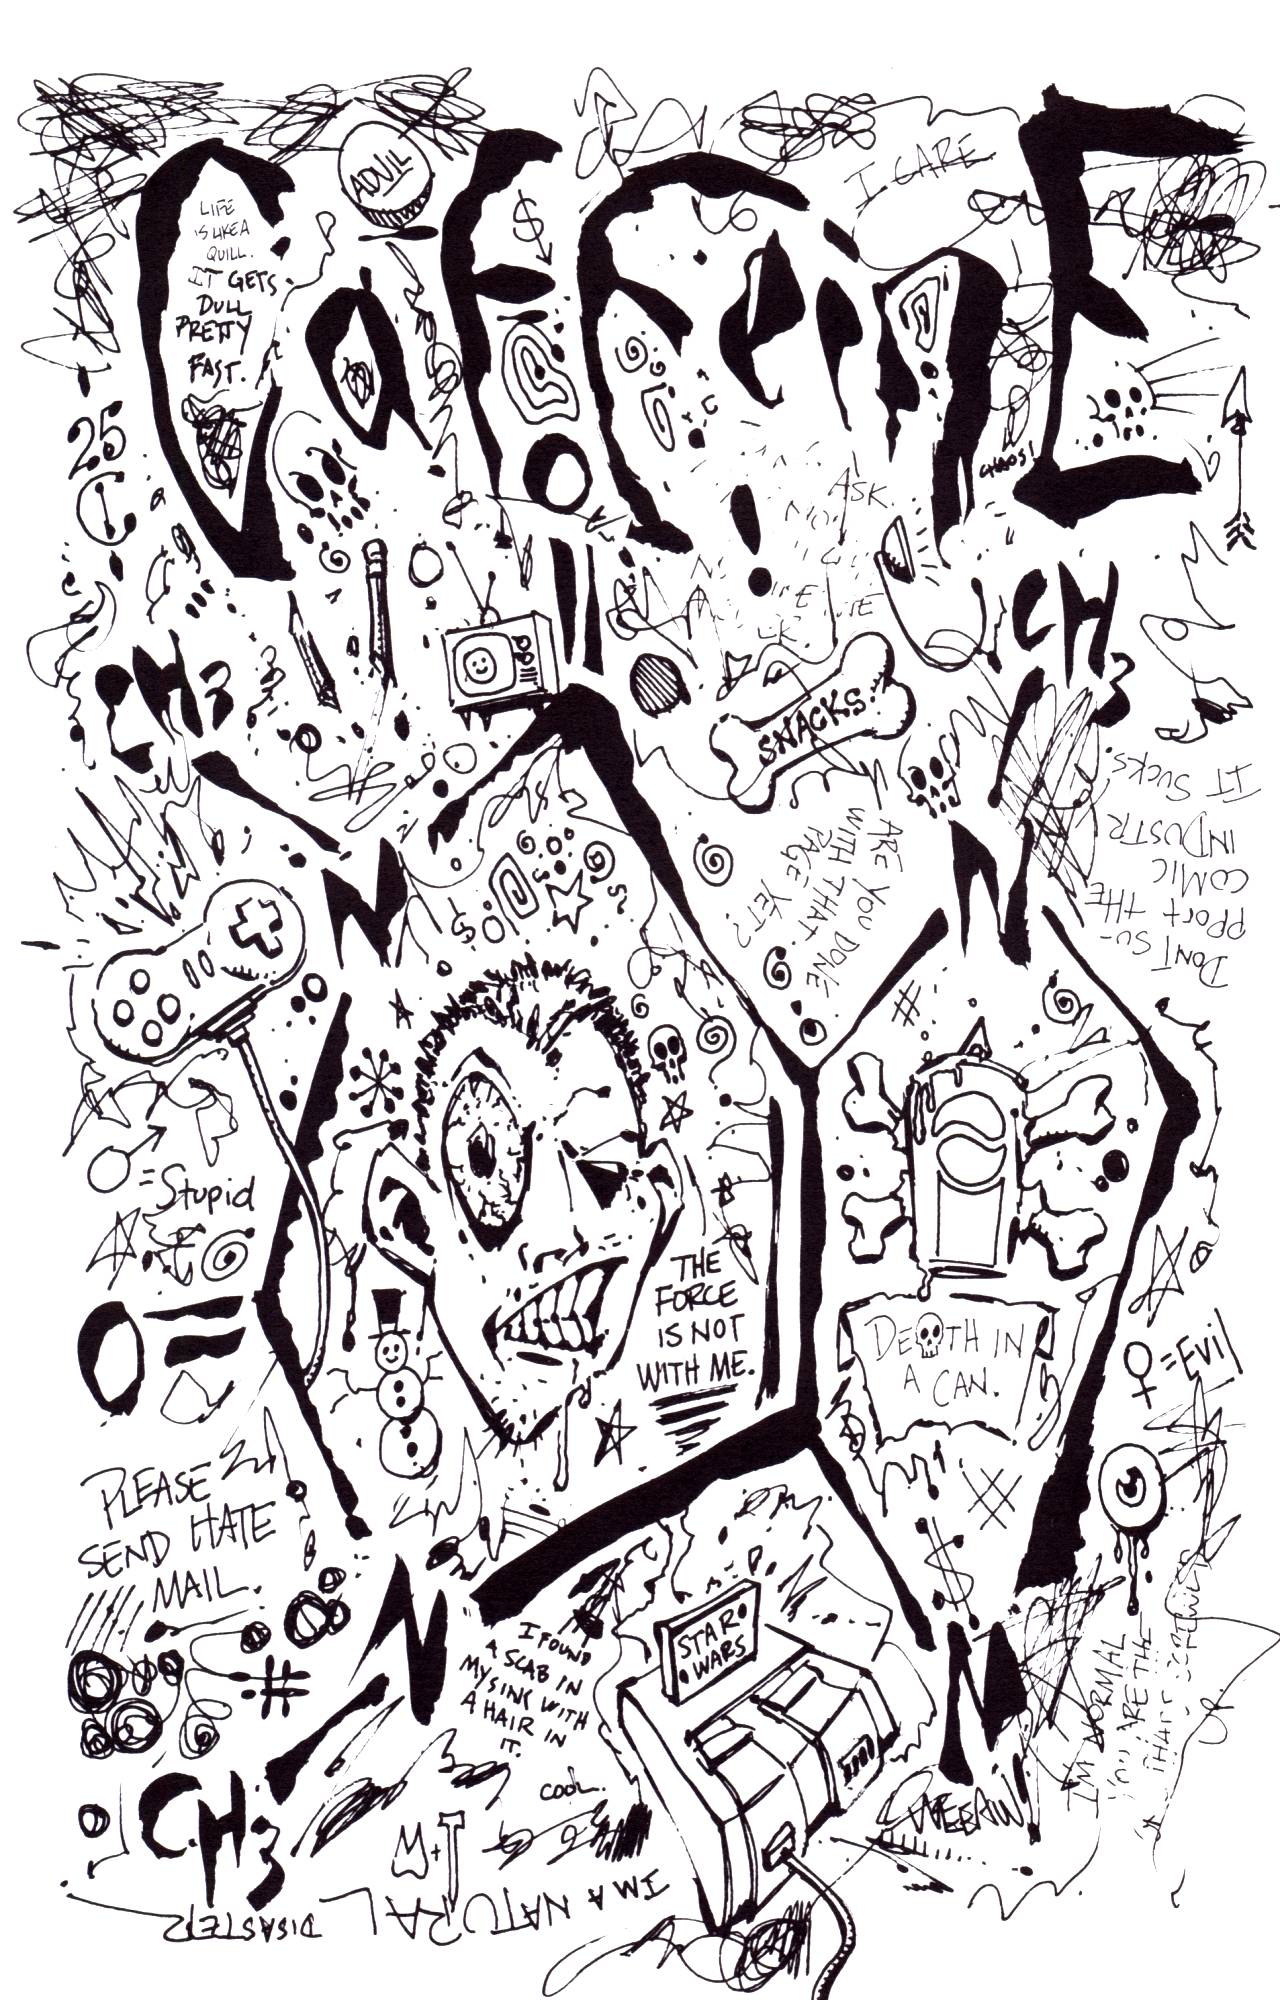 CaFFeinE
ADVIL
I CARE
LIFE
IS LIKE A
QUILL.
IT GETS
DULL
PRETTY
FAST.
$
25
¢
CHAOS!
ASK
O
CH3
CH3
SNACKS
ARE YOU DONE
WITH THAT
PAGE YET?
DON'T SU-
PPORT THE
COMIC
INDUSTR
IT SUCKS.
N
N
#
♂ = Stupid
THE
FORCE
IS NOT
WITH ME.
O =
DEATH IN
A CAN.
♀ = Evil
PLEASE
SEND HATE
MAIL.
$
#
I FOUND
A SCAB IN
MY SINK WITH
A HAIR IN
IT.
COOL.
STAR
WARS
N
N
I'M NORMAL
YOU ARE THE
CH3
M+T
I'M A NATURAL
DISASTER